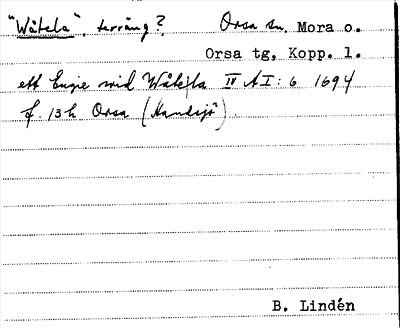 "Wåtela", terräng? Orsa sn. Mora o.
Orsa tg, Kopp. l.
ett Engie wid Wåtela IV A I: 6 1694
f. 13 h Orsa (Handsjö).
B. Lindén